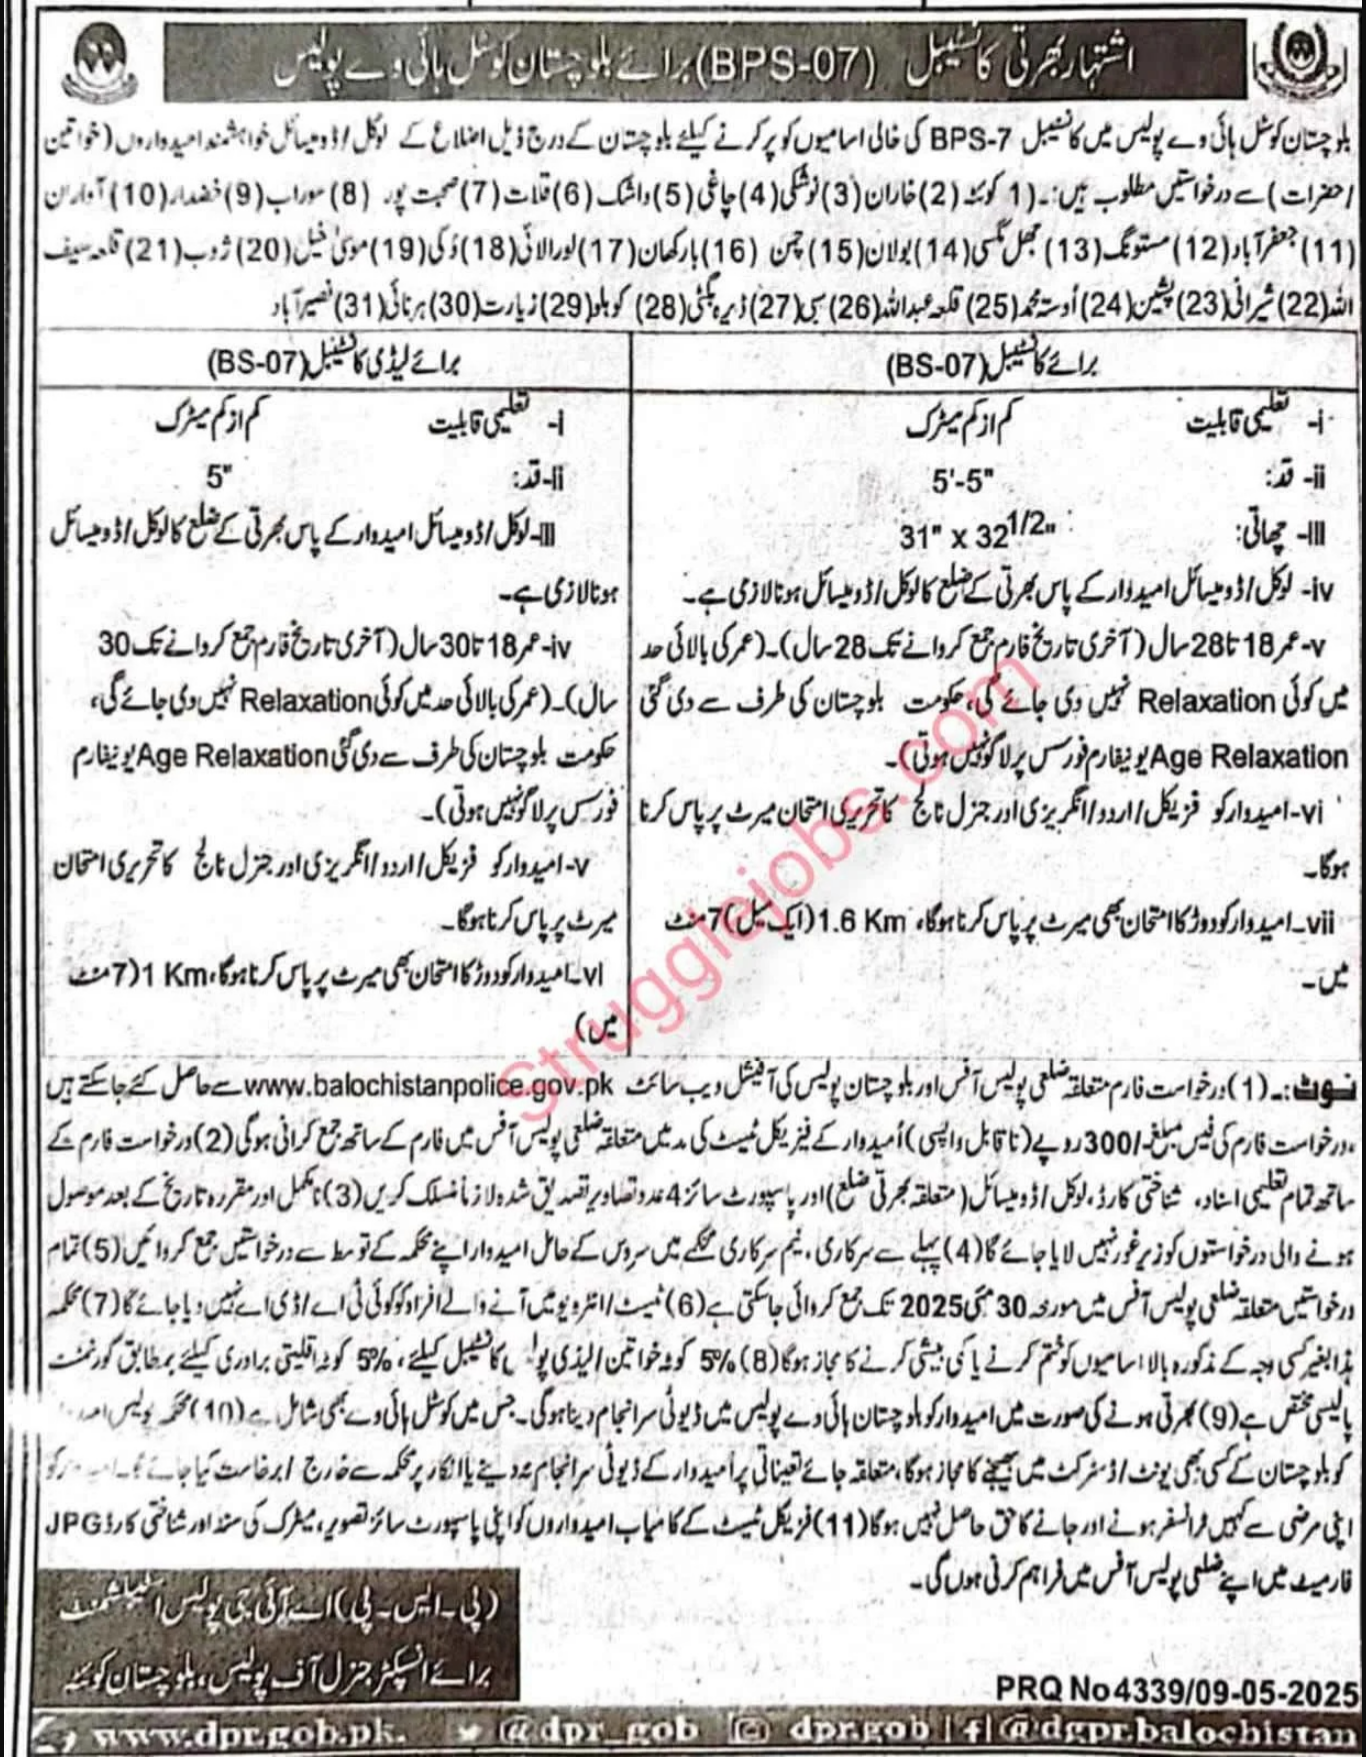 اشتہار بھرتی کانسٹیبل (BPS-07) برائے بلوچستان کوسٹل ہائی وے پولیس
بلوچستان کوسٹل ہائی وے پولیس میں کانسٹیبل BPS-7 کی خالی اسامیوں کو پر کرنے کیلئے بلوچستان کے درج ذیل اضلاع کے لوکل/ڈومیسائل خواہشمند امیدواروں (خواتین
/حضرات) سے درخواستیں مطلوب ہیں:۔ (1 کوئٹہ (2) خاران (3) نوشکی (4) چاغی (5) واشک (6) قلات (7) صحبت پور (8) سوراب (9) خضدار (10) آواران
(11) جعفر آباد (12) مستونگ (13) جھل مگسی (14) بولان (15) چمن (16) بارکھان (17) لورالائی (18) دُکی (19) موسیٰ خیل (20) ژوب (21) قلعہ سیف
اللہ (22) شیرانی (23) پشین (24) اُوستہ محمد (25) قلعہ عبداللہ (26) سبی (27) ڈیرہ بگٹی (28) کوہلو (29) زیارت (30) ہرنائی (31) نصیر آباد
برائے کانسٹیبل (BS-07)
i- تعلیمی قابلیت کم از کم میٹرک
ii- قد: 5'-5"
III- چھاتی: 31" x 32 1/2"
iv- لوکل/ڈومیسائل امیدوار کے پاس بھرتی کے ضلع کا لوکل/ڈومیسائل ہونا لازمی ہے۔
v- عمر 18 تا 28 سال (آخری تاریخ فارم جمع کروانے تک 28 سال)۔ (عمر کی بالائی حد
میں کوئی Relaxation نہیں دی جائے گی، حکومت بلوچستان کی طرف سے دی گئی
Age Relaxation یونیفارم فورسس پر لاگو نہیں ہوتی)۔
vi- امیدوار کو فزیکل/اردو/انگریزی اور جنرل نالج کا تحریری امتحان میرٹ پر پاس کرنا
ہوگا۔
vii۔ امیدوار کو دوڑ کا امتحان بھی میرٹ پر پاس کرنا ہوگا، 1.6 Km (ایک میل) 7 منٹ
میں۔
برائے لیڈی کانسٹیبل (BS-07)
i- تعلیمی قابلیت کم از کم میٹرک
ii- قد: 5"
III- لوکل/ڈومیسائل امیدوار کے پاس بھرتی کے ضلع کا لوکل/ڈومیسائل
ہونا لازمی ہے۔
iv- عمر 18 تا 30 سال (آخری تاریخ فارم جمع کروانے تک 30
سال)۔ (عمر کی بالائی حد میں کوئی Relaxation نہیں دی جائے گی،
حکومت بلوچستان کی طرف سے دی گئی Age Relaxation یونیفارم
فورسس پر لاگو نہیں ہوتی)۔
v- امیدوار کو فزیکل/اردو/انگریزی اور جنرل نالج کا تحریری امتحان
میرٹ پر پاس کرنا ہوگا۔
vI۔ امیدوار کو دوڑ کا امتحان بھی میرٹ پر پاس کرنا ہوگا، 1 Km (7 منٹ
میں)
نوٹ:۔ (1) درخواست فارم متعلقہ ضلعی پولیس آفس اور بلوچستان پولیس کی آفیشل ویب سائٹ www.balochistanpolice.gov.pk سے حاصل کئے جاسکتے ہیں
،درخواست فارم کی فیس مبلغ -/300 روپے (ناقابل واپسی) اُمیدوار کے فیزیکل ٹیسٹ کی مد میں متعلقہ ضلعی پولیس آفس میں فارم کے ساتھ جمع کرانی ہوگی (2) درخواست فارم کے
ساتھ تمام تعلیمی اسناد، شناختی کارڈ، لوکل/ڈومیسائل (متعلقہ بھرتی ضلع) اور پاسپورٹ سائز 4 عدد تصاویر تصدیق شدہ لازماً منسلک کریں (3) نامکمل اور مقررہ تاریخ کے بعد موصول
ہونے والی درخواستوں کو زیر غور نہیں لایا جائے گا (4) پہلے سے سرکاری، نیم سرکاری محکمے میں سروس کے حامل امیدوار اپنے محکمہ کے توسط سے درخواستیں جمع کروائیں (5) تمام
درخواستیں متعلقہ ضلعی پولیس آفس میں مورخہ 30 مئی 2025 تک جمع کروائی جاسکتی ہے (6) ٹیسٹ/انٹرویو میں آنے والے افراد کو کوئی ٹی اے/ڈی اے نہیں دیا جائے گا (7) محکمہ
ہذا بغیر کسی وجہ کے مذکورہ بالا اسامیوں کو ختم کرنے یا کمی بیشی کرنے کا مجاز ہوگا (8) 5% کوٹہ خواتین/لیڈی پولیس کانسٹیبل کیلئے، 5% کوٹہ اقلیتی برادری کیلئے بمطابق گورنمنٹ
پالیسی مختص ہے (9) بھرتی ہونے کی صورت میں امیدوار کو بلوچستان ہائی وے پولیس میں ڈیوٹی سر انجام دینا ہوگی۔ جس میں کوسٹل ہائی وے بھی شامل ہے (10) محکمہ پولیس
کو بلوچستان کے کسی بھی یونٹ/ڈسٹرکٹ میں بھیجنے کا مجاز ہوگا، متعلقہ جائے تعیناتی پر اُمیدوار کے ڈیوٹی سرانجام نہ دینے یا انکار پر محکمہ سے خارج/برخاست کیا جائے گا۔ امیدوار کو
اپنی مرضی سے کہیں ٹرانسفر ہونے اور جانے کا حق حاصل نہیں ہوگا (11) فزیکل ٹیسٹ کے کامیاب امیدواروں کو اپنی پاسپورٹ سائز تصویر، میٹرک کی سند اور شناختی کارڈ JPG
فارمیٹ میں اپنے ضلعی پولیس آفس میں فراہم کرنی ہوں گی۔
(پی۔ایس۔پی) اے آئی جی پولیس اسٹیبلشمنٹ
برائے انسپکٹر جنرل آف پولیس، بلوچستان کوئٹہ
PRQ No 4339/09-05-2025
www.dpr.gob.pk. @dpr_gob dpr.gob | f | @dgpr.balochistan
Strugglejobs.com